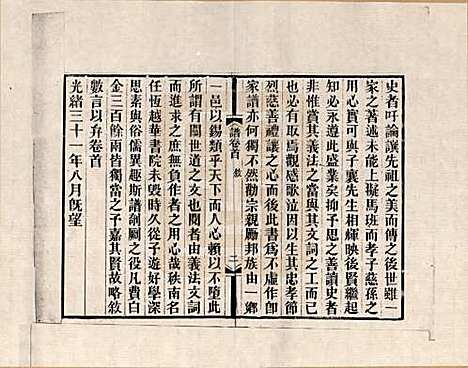 史者吁論讓先祖之美而傳之後世雖一
家之著述未能上擬馬班而孝子慈孫之
用心實可與子襄先生相輝映後賢繼起
知必承遞此盛業矣抑予思之善讀史者
非惟求其義法之當與其文詞之工而已
也必有取焉觀感歌泣因以生其忠孝節
烈慈善禮讓之心而後此書爲不虛作卽
家譜亦何獨不然勸宗親勵邦族由一鄉
譜卷首
敘
二
一邑以錫類乎天下而人心賴以不墮此
所謂有關世道之文也閱者由義法文詞
進而求之庶無負作者之用心哉秩南名
任恆越華書院未毀時久從予遊好學深
思素與俗儒異趣斯譜剞劂之役凡費白
金三百餘兩皆獨當之予嘉其賢故略敘
數言以弁卷首
光緒三十一年八月旣望